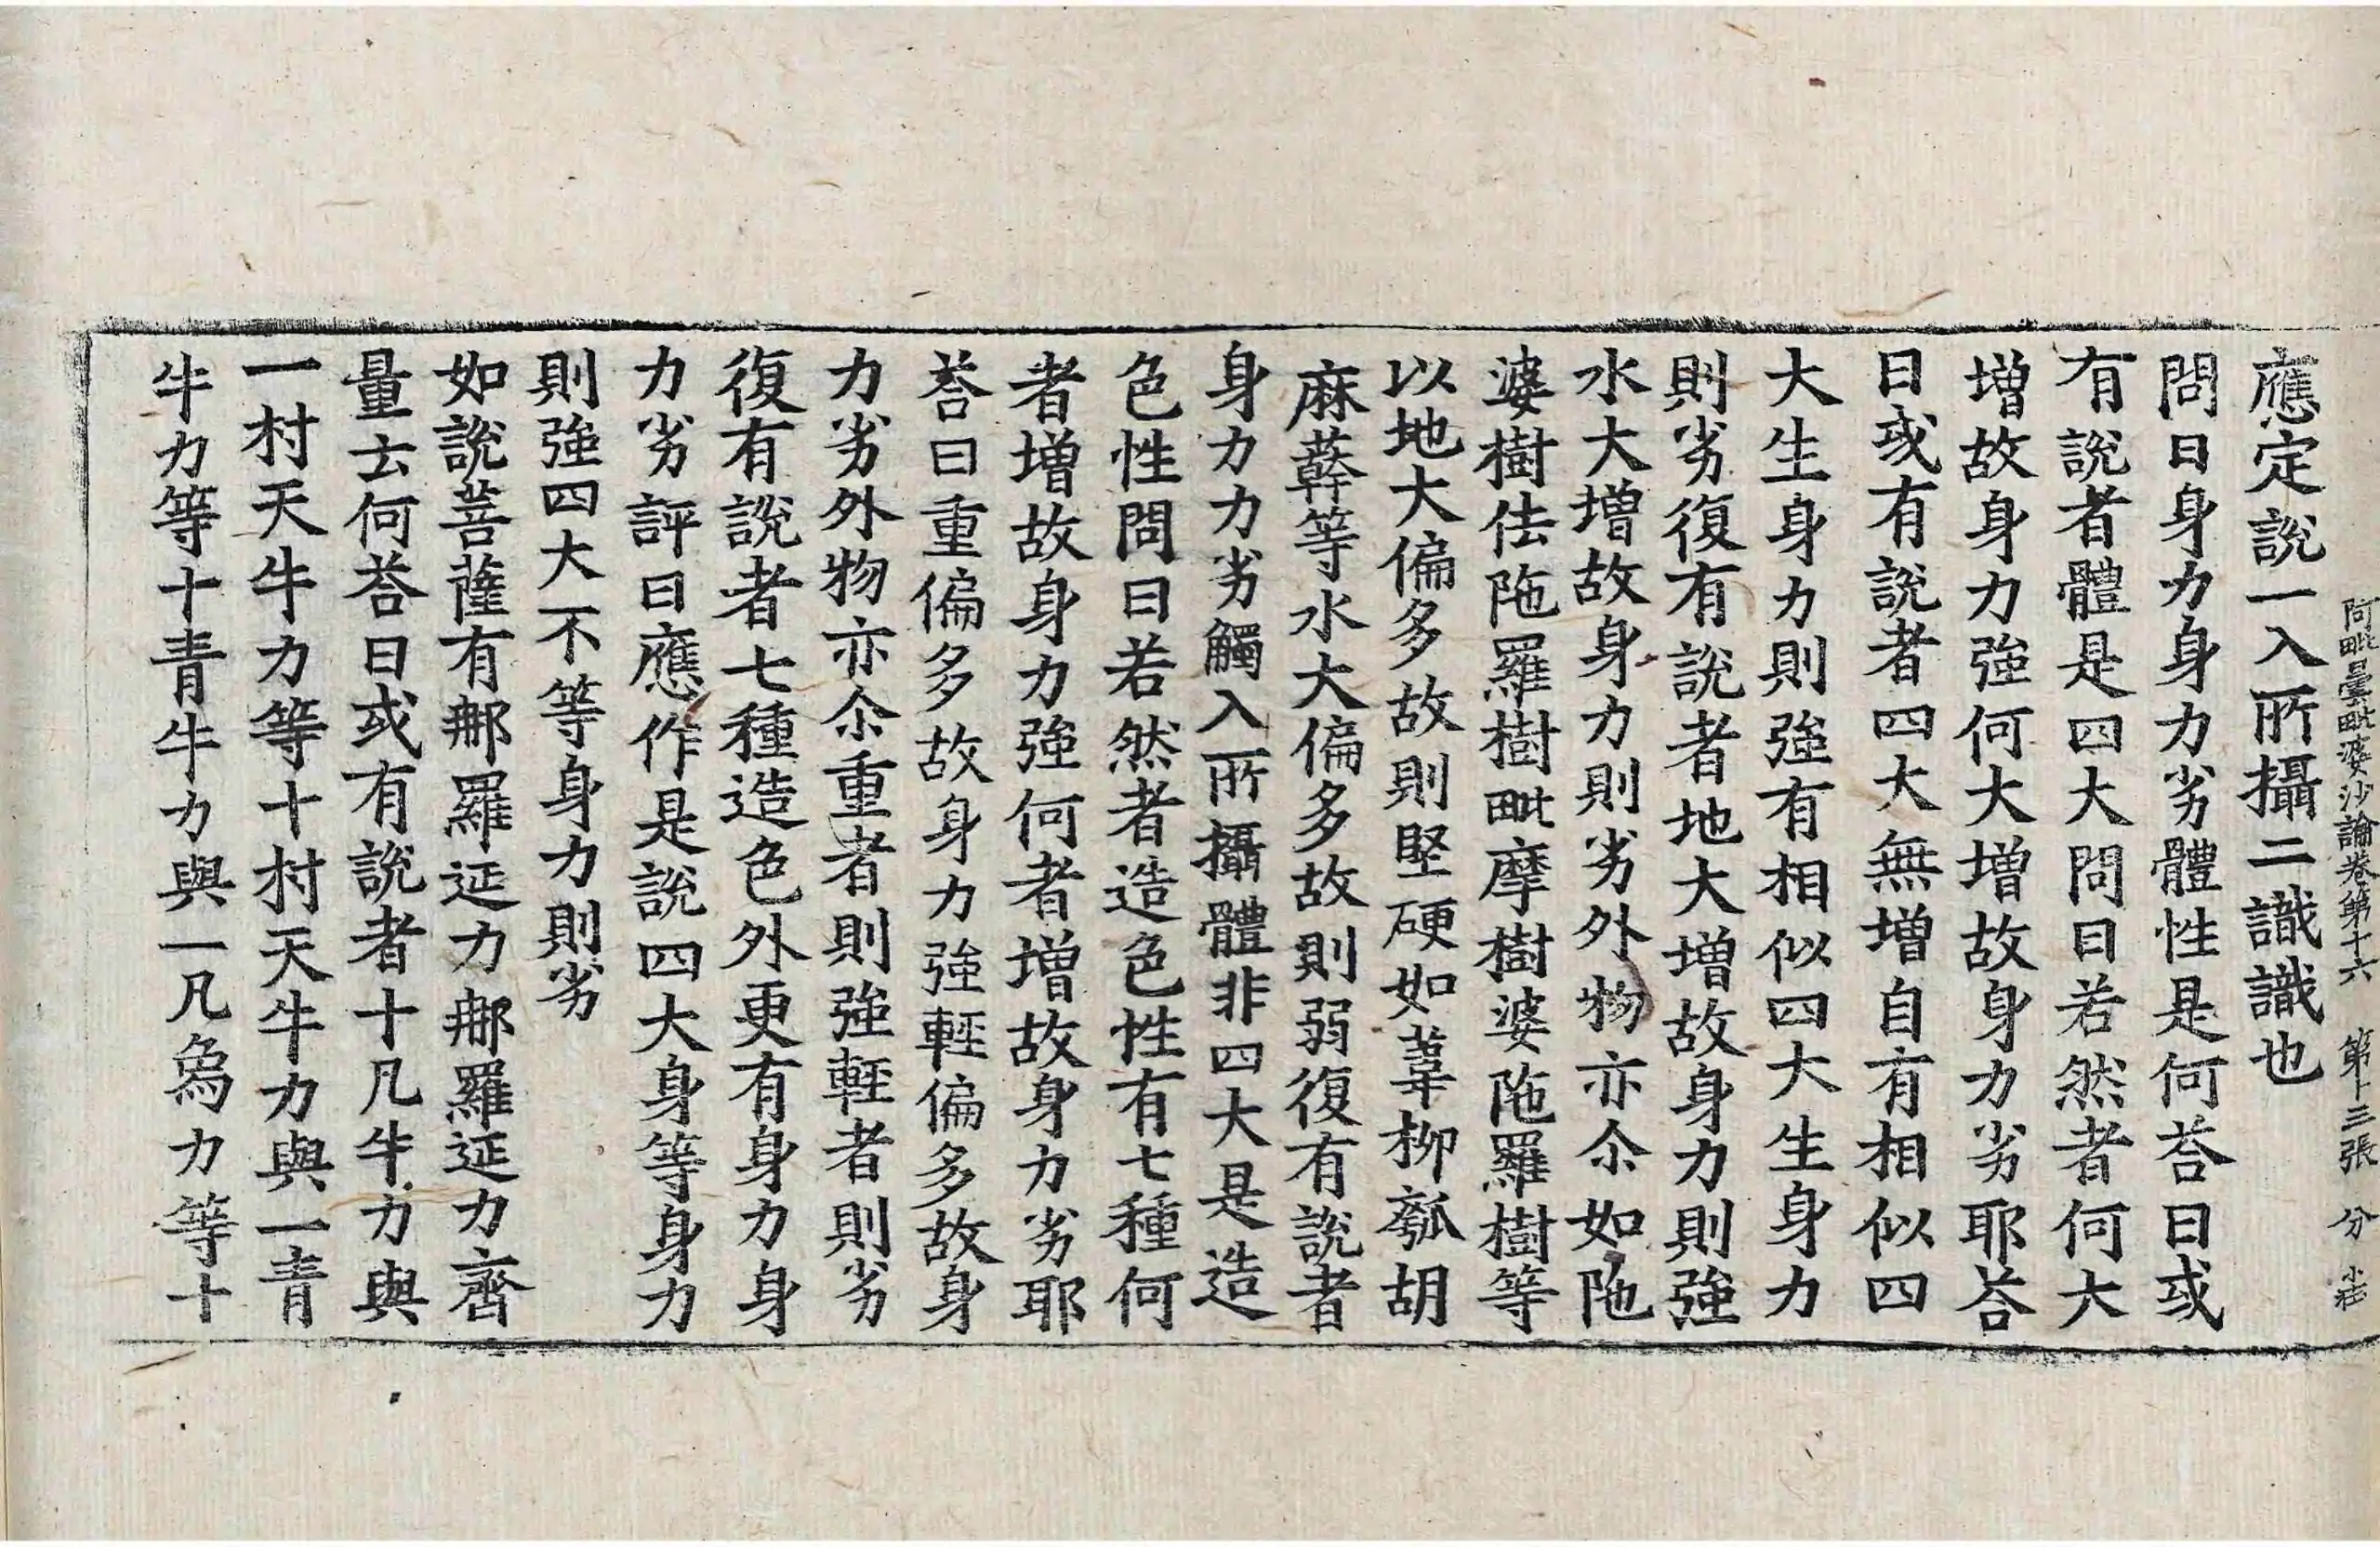 阿毗曇毗婆沙論卷第十六　第十三張　分
應定說一入所攝二識識也
問曰身力身力劣體性是何荅曰或
有說者體是四大問曰若然者何大
增故身力強何大增故身力劣耶荅
曰或有說者四大無增自有相似四
大生身力則強有相似四大生身力
則劣復有說者地大增故身力則強
水大增故身力則劣外物亦尒如陁
婆樹佉陁羅樹毗摩樹婆陁羅樹等
以地大偏多故則堅硬如葦柳瓠胡
麻蓒等水大偏多故則弱復有說者
身力力劣觸入所攝體非四大是造
色性問曰若然者造色性有七種何
者增故身力強何者增故身力劣耶
荅曰重偏多故身力強輕偏多故身
力劣外物亦尒重者則強輕者則劣
復有說者七種造色外更有身力身
力劣評曰應作是說四大身等身力
則強四大不等身力則劣
如說菩薩有那羅延力那羅延力齊
量云何荅曰或有說者十凡牛力與
一村天牛力等十村天牛力與一青
牛力等十青牛力與一凡鳥力等十